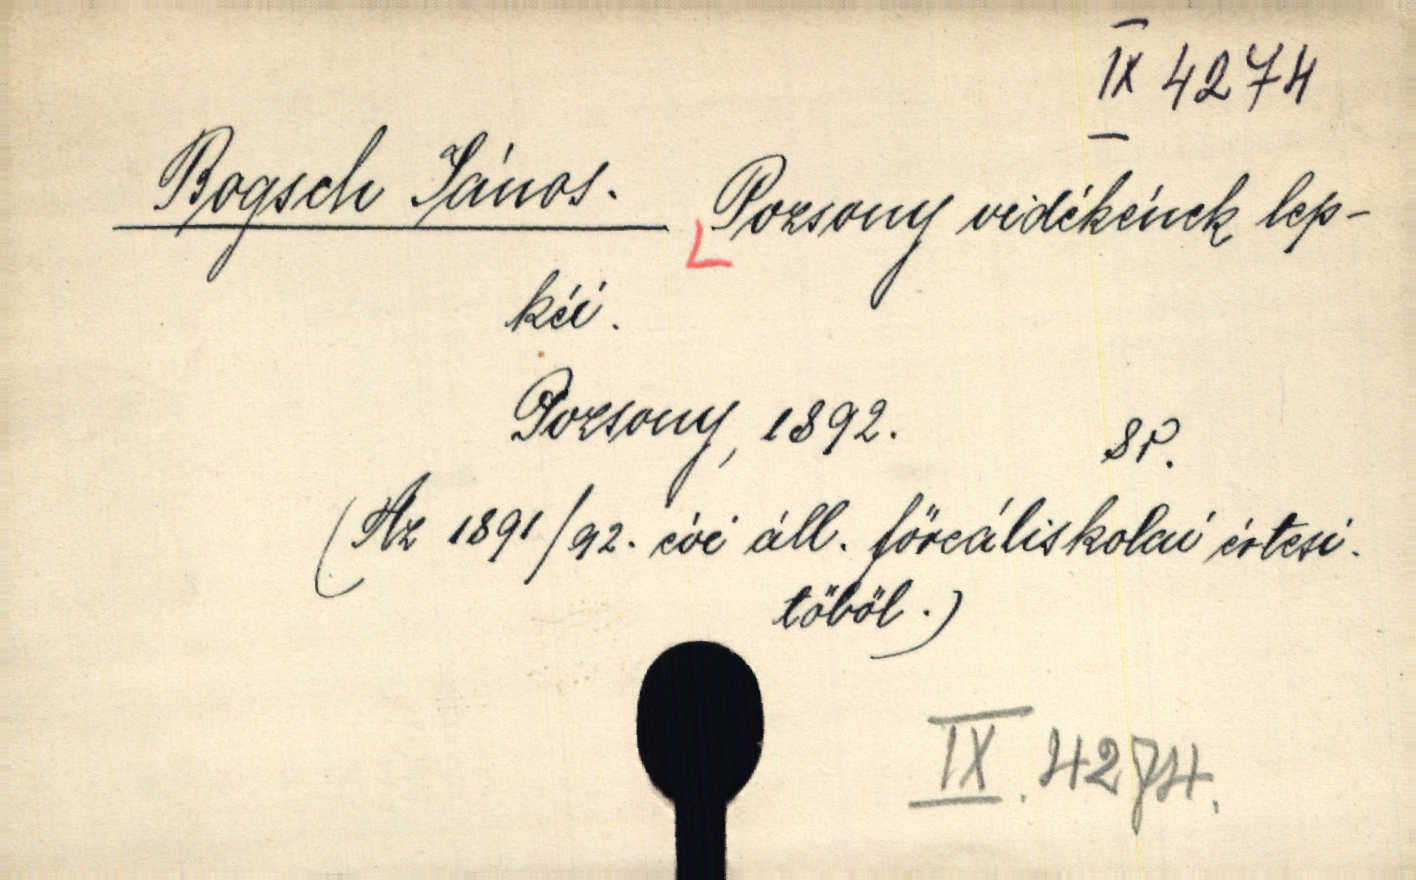 IX 4274
Bogsch János. Pozsony vidékének lep-
kéi.
Pozsony, 1892. 8r.
(Az 1891/92. évi áll. főreáliskolai értesi-
tőből.)
IX. 4274.